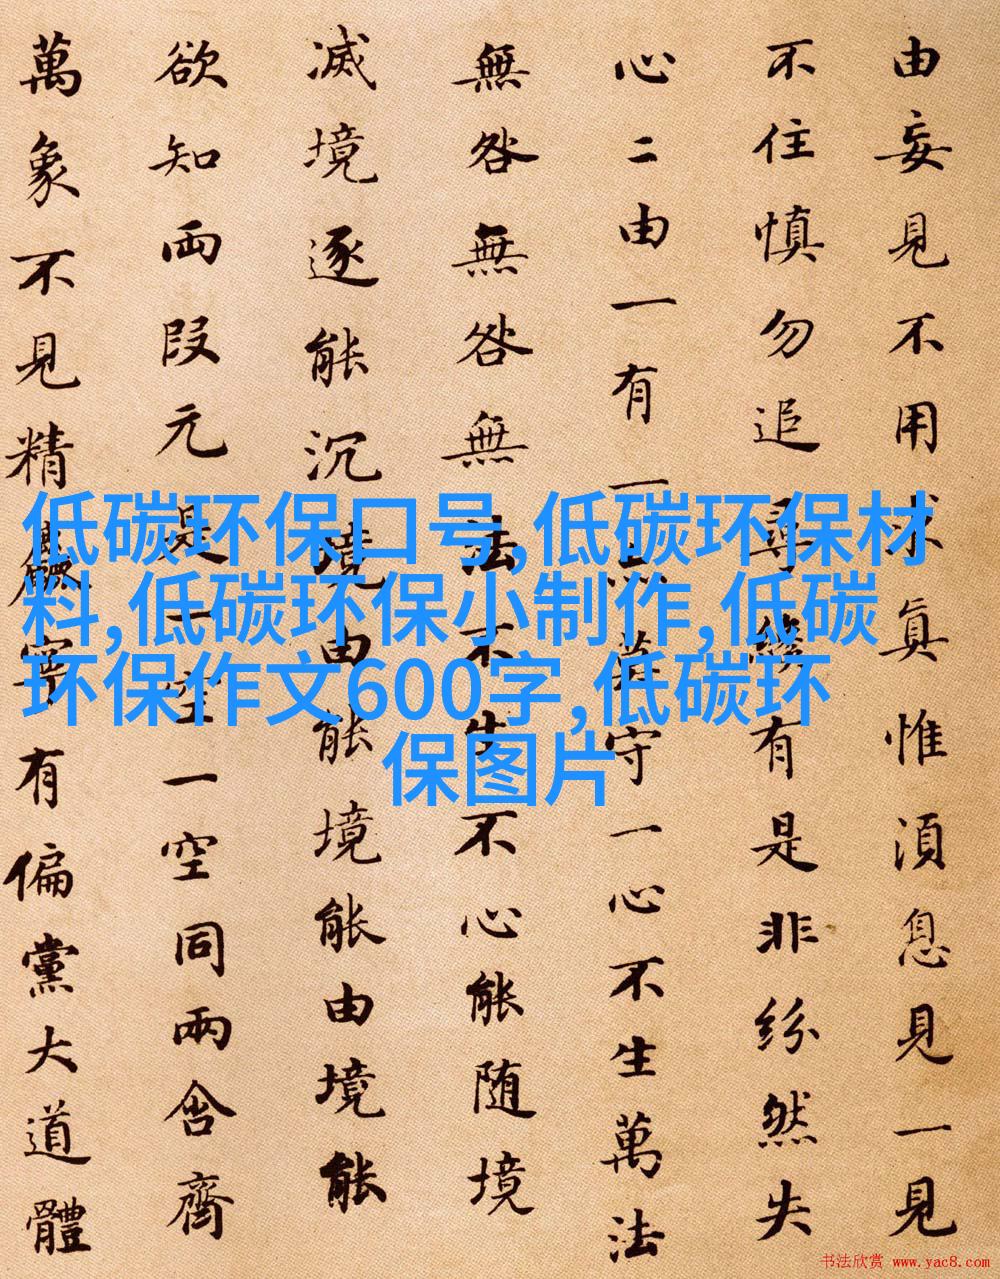 由妄見不用求真惟須息見一見
不住慎勿追尋纔有是非紛然失
心二由一有一守一心不生萬法
無咎無咎無法不生不心能隨境
滅境逐能沉境由能境能由境能
欲知兩段元是一空一空同兩含齊
萬象不見精麤寧有偏黨大道體
低碳环保口号,低碳环保材
料,低碳环保小制作,低碳
环保作文600字,低碳环
保图片
书法欣赏 www.yac8.com